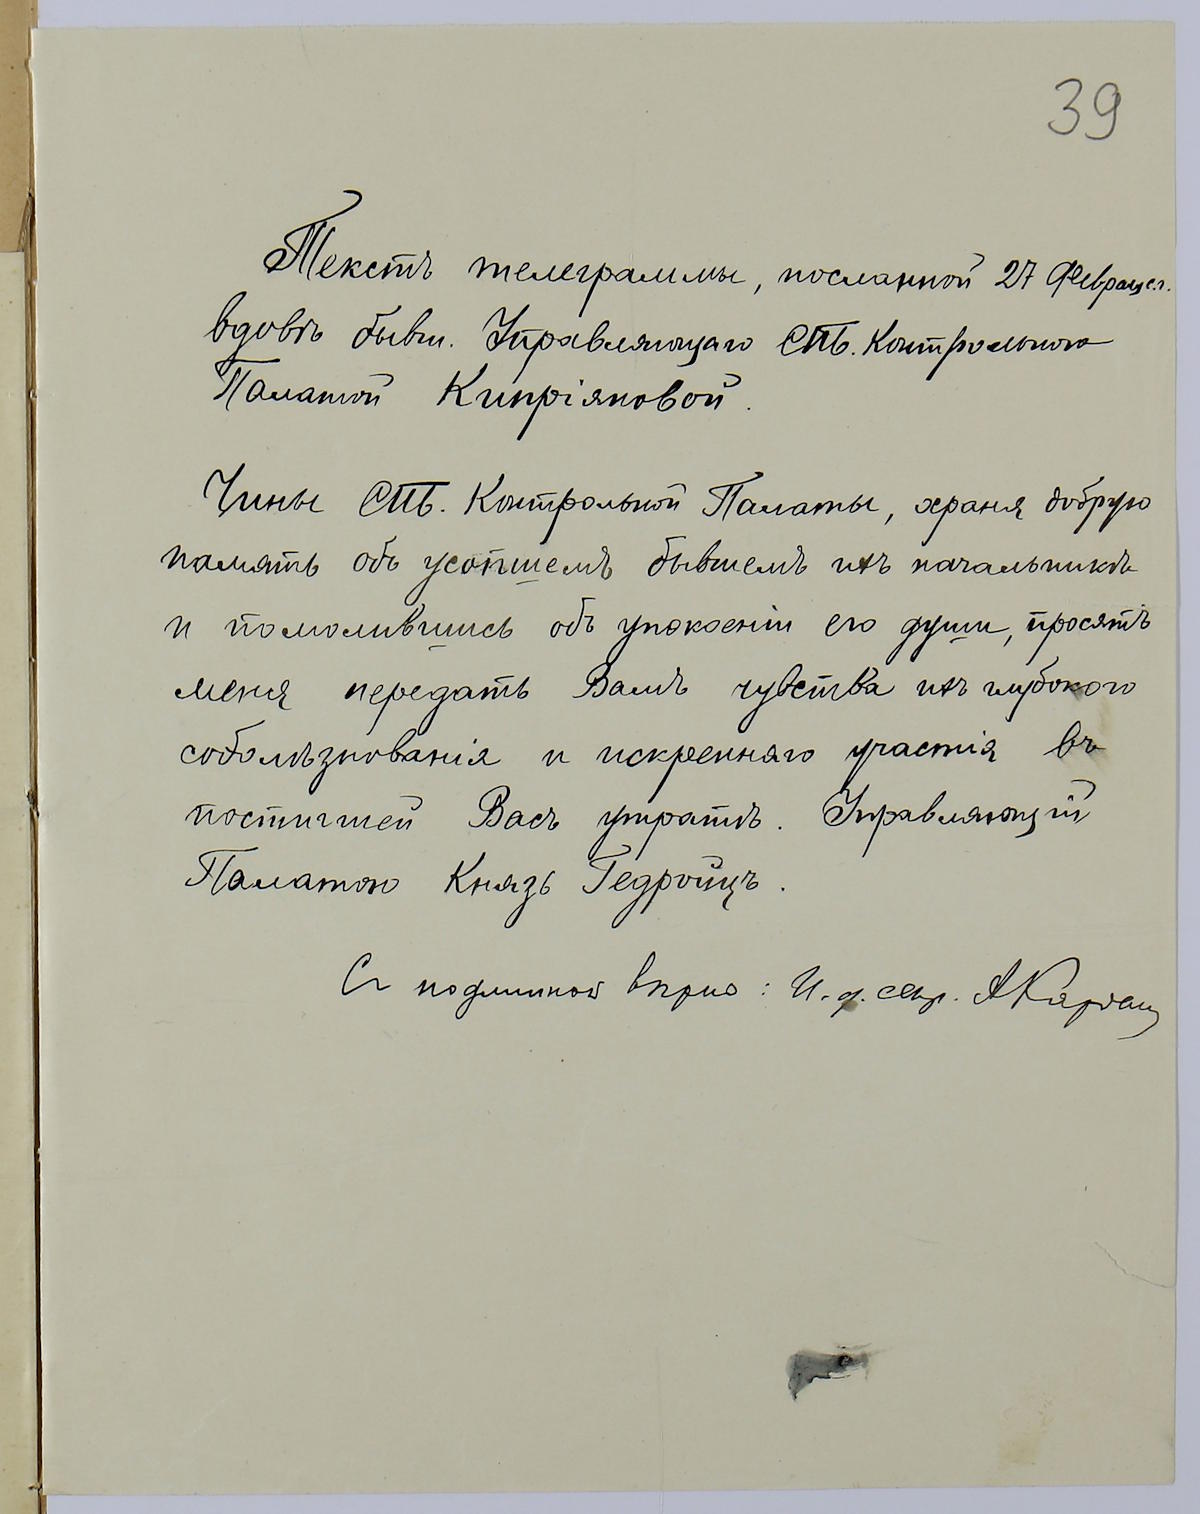 39
Текстъ телеграммы, посланной 27 Февраля с.г.
вдовѣ бывш. Управляющаго СПБ. Контрольною
Палатой Кипріяновой.
Чины СПБ. Контрольной Палаты, храня добрую
память объ усопшемъ бывшемъ ихъ начальникѣ
и помолившись объ упокоеніи его души, просятъ
меня передать Вамъ чувства ихъ глубокого
соболѣзнованія и искренняго участія въ
постигшей Васъ утратѣ. Управляющій
Палатою Князь Гедройцъ.
Съ подлинной вѣрно: И. д. секр.